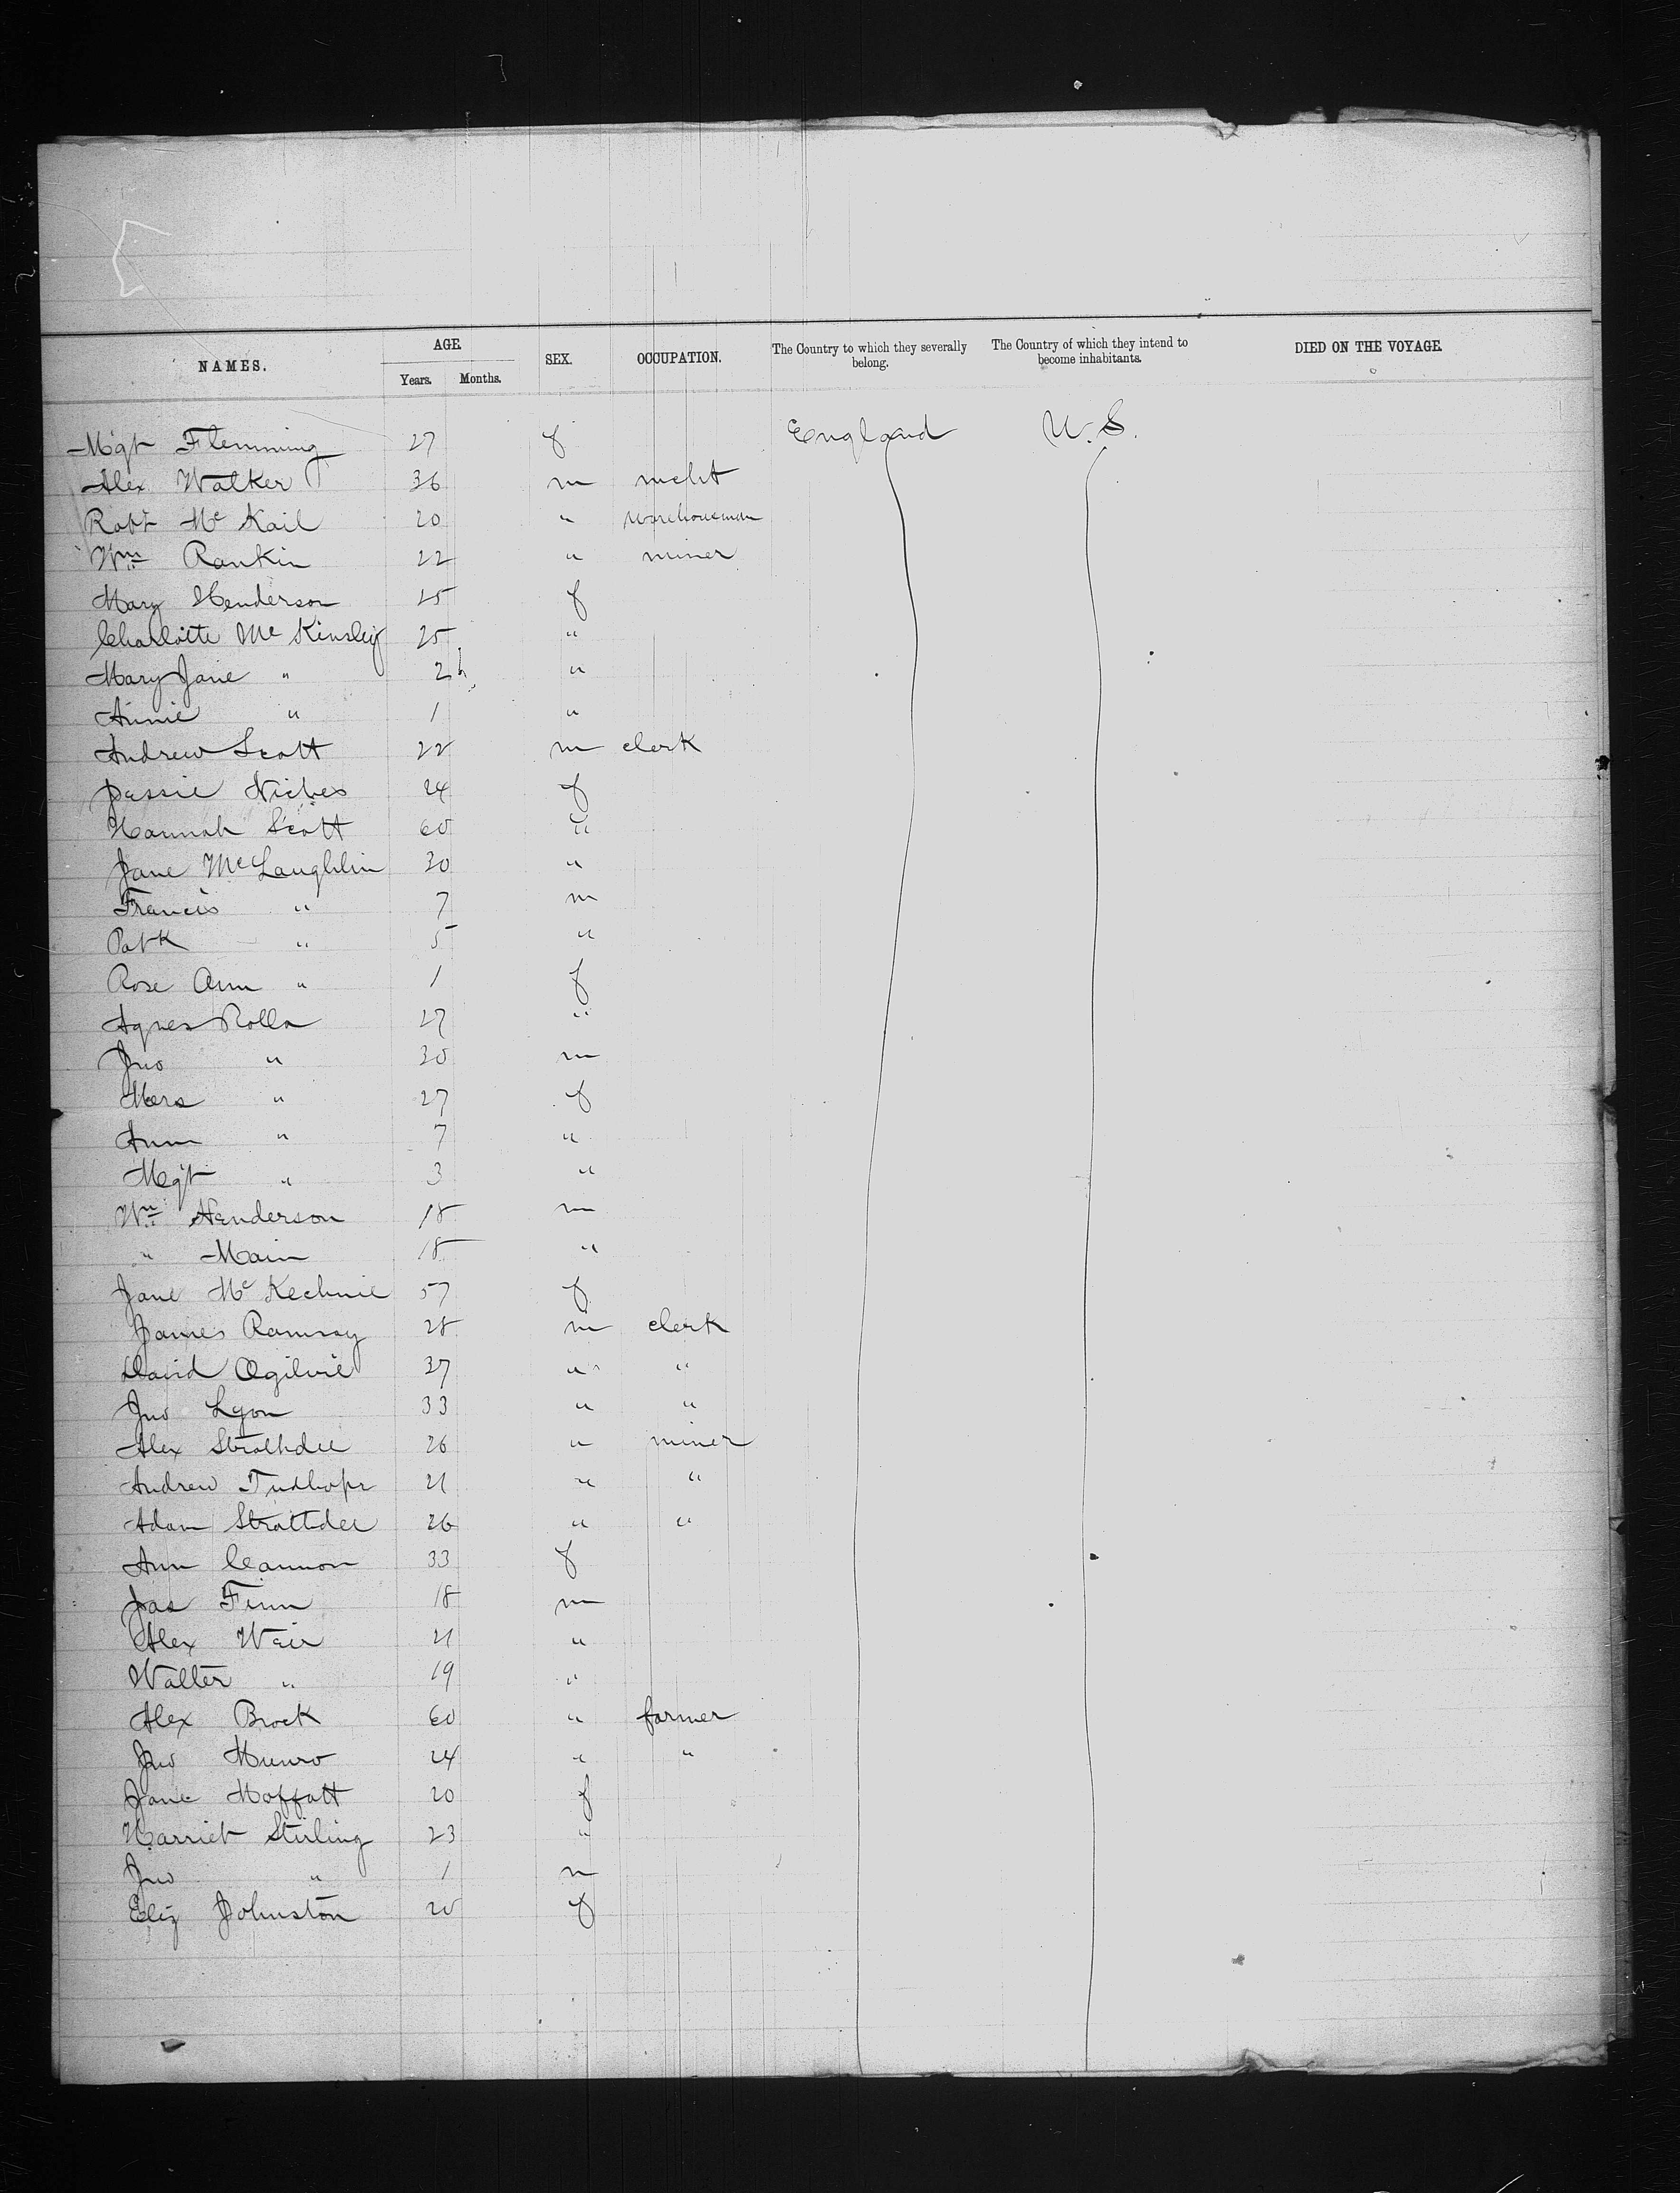 NAMES. AGE. SEX. OCCUPATION. The Country to which they severally belong. The Country of which they intend to become inhabitants. DIED ON THE VOYAGE.
Years. Months.
Mgt Flemming 27 f England U.S.
Alex Walker 36 m mcht
Robt Mc Kail 20 " warehouseman
Wm Rankin 22 " miner
Mary Henderson 25 f
Charlotte Mc Kinsley 25 "
Mary Jane " 2 "
Annie " 1 "
Andrew Scott 22 m clerk
Jessie 24 f
Hannah Scott 60 "
Jane McLaughlin 30 "
Francis " 7 m
Patk " 5 "
Rose Ann " 1 f
Agnes Rolla 27 "
Jno " 30 m
" 27 f
Ann " 7 "
Mgt " 3 "
Wm Henderson 18 m
" Main 18 "
Jane Mc Kechnie 57 f
James Ramsay 28 m clerk
David Ogilvie 37 " "
Jno Lyon 33 " "
Alex Strathdee 26 " miner
Andrew Tudhope 21 " "
Adam Strattdee 26 " "
Ann Cannon 33 f
Jas Finn 18 m
Alex Weir 21 "
Walter " 19 "
Alex Brock 60 " farmer
Jno Munro 24 " "
Jane Moffatt 20 f
Harriet Stirling 23 "
Jno " 1 m
Eliz Johnston 20 f